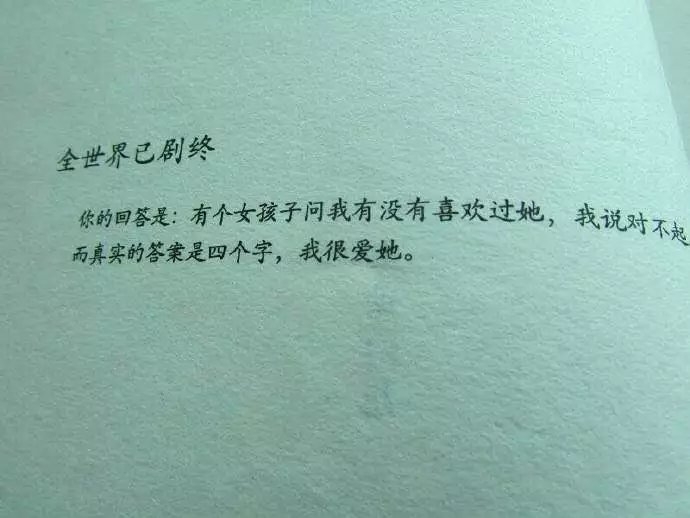 全世界已剧终
你的回答是：有个女孩子问我有没有喜欢过她，我说对不起
而真实的答案是四个字，我很爱她。